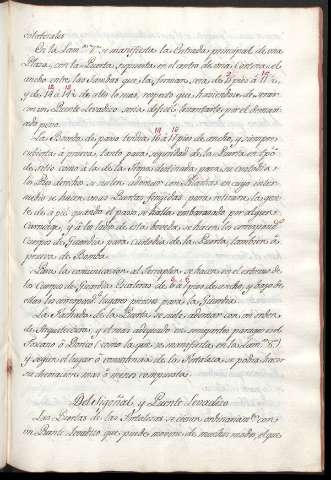 colaterales
En la Lam.ª 7.ª se manifiesta la Entrada principal de una
Plaza, con la Puerta, supuesta en el centro de una Cortina: el
ancho entre las Jambas que la forman, sera de 9 pies à 10 ½,
y de 13 à 14 ½ de alto lo mas, respecto que haviendose de cerrar
con un Puente Levadizo seria dificil levantarle por el demasi-
ado peso.
La Bobeda de paso tendra 16 à 17 pies de ancho, y siempre
cubierta à prueva, tanto para seguridad de la Puerta en tpo
de sitio como à la de la Tropa destinada para su custodia:
los Pies derechos se suelen adornar con Pilastras en cuyo inter-
medio se hacen unas Puertas fingidas para retirarse la gen-
te de à pie quando el paso se halla embarazado por algun
Carruage, y à los lados de esta bobeda, se hacen los correspond.tes
Cuerpos de Guardia para custodia de la Puerta, tambien à
prueva de Bomba.
Para la comunicacion al Terraplen se hacen en el extremo de
los Cuerpos de Guardia Escaleras de 6 à 8 pies de ancho, y bajo de
ellas los correspond.tes lugares precisos para la Guardia.
La Fachada de la Puerta se suele adornar con un orden
de Arquitectura, y el mas adequado en semejantes parages es el
Toscano ò Dorico; como la que se manifiesta en la Lam.ª 6.ª
y segun el lugar ò circunstancia de la Fortaleza se podra hacer
su decoracion mas ò menos compuesta.
Del Sigoñal, y Puente Levadizo
Las Puertas de las Fortalezas se cierran ordinariam.te con
un Puente Levadizo que puede moverse de muchos modos, el que